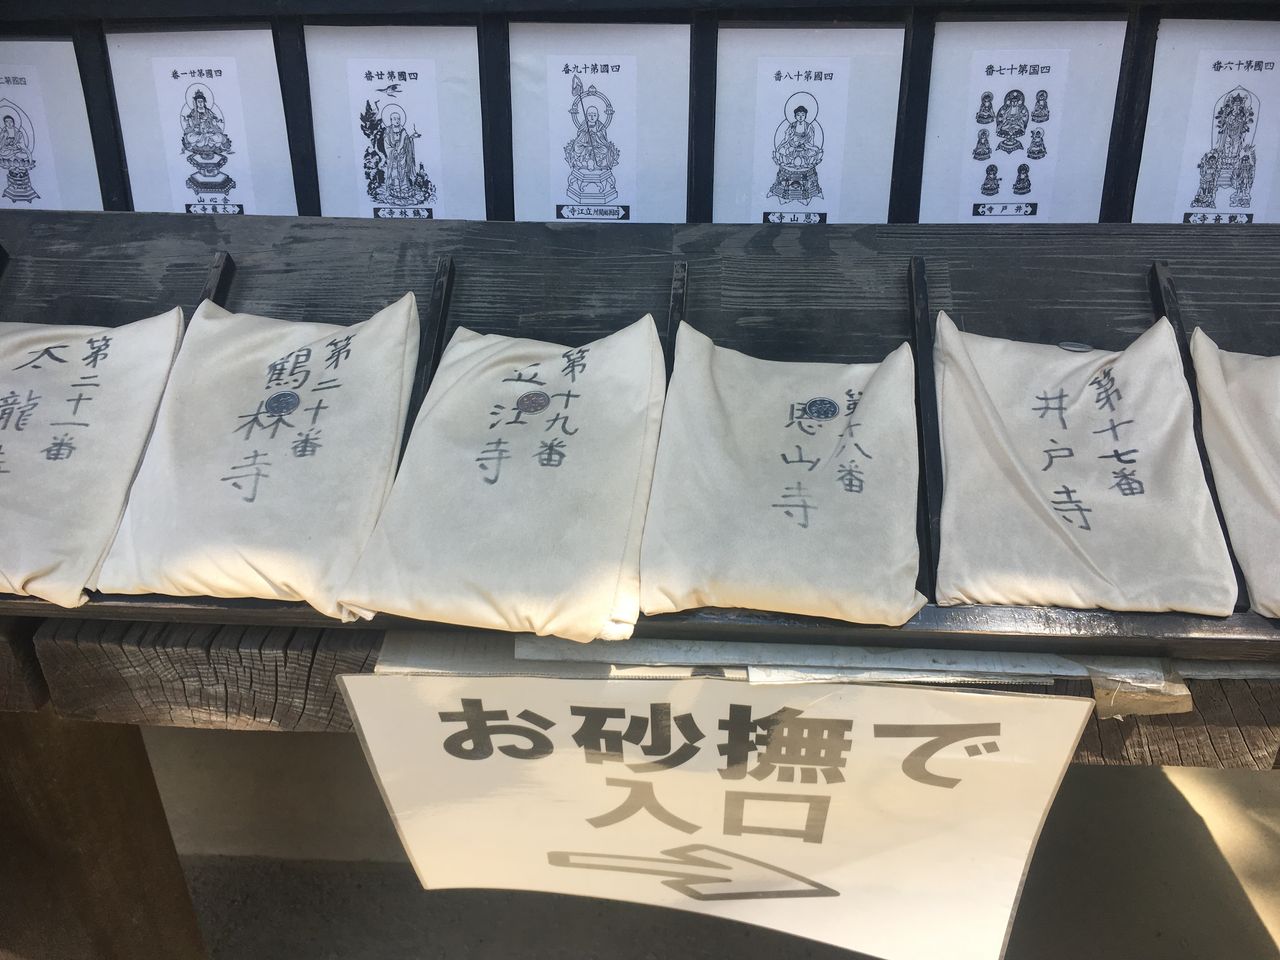 四國第廿一番
舎心山
太龍寺
四國第廿番
鶴林寺
四國第十九番
立江寺
四國第十八番
恩山寺
四国第十七番
井戸寺
四國第十六番
觀音寺
第二十一番
太龍寺
第二十番
鶴林寺
第十九番
立江寺
第十八番
恩山寺
第十七番
井戸寺
お砂撫で
入口